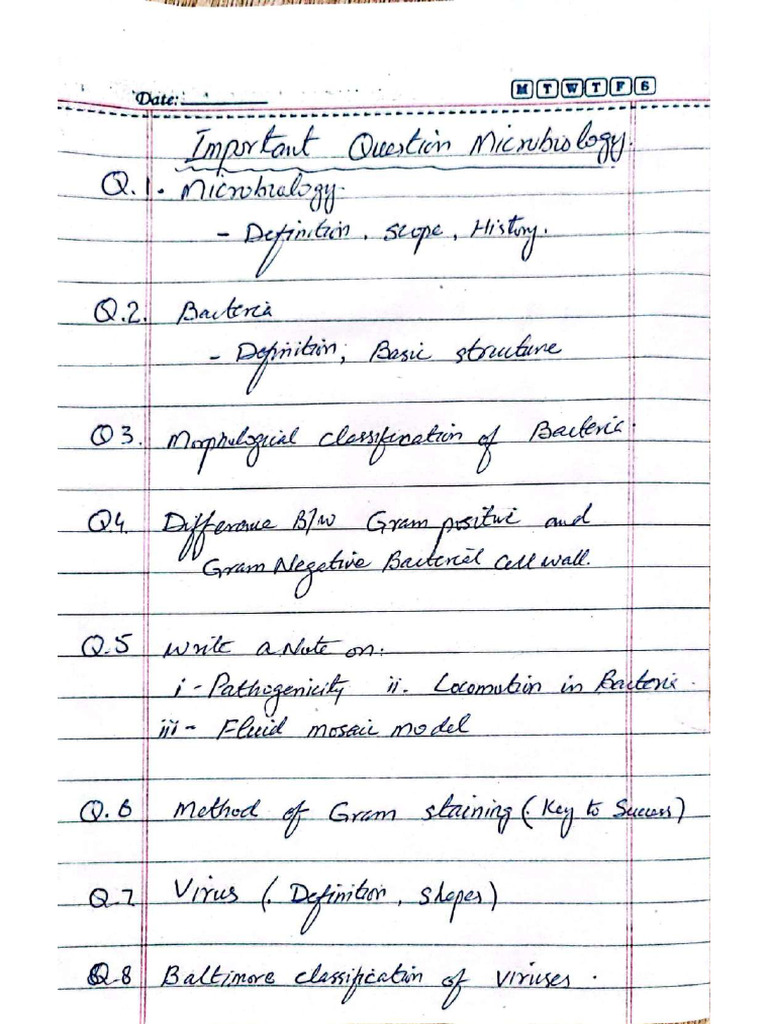 Date:
M T W T F S
Important Question Microbiology.
Q.1. Microbialogy.
- Definition, Scope, History.
Q.2. Bacteria
- Definition; Basic structure
Q3. Morphological classification of Bacteria.
Q4. Difference B/w Gram positive and
Gram Negative Bacterial cell wall.
Q.5 Write a Note on:
i - Pathogenicity ii. Locomotion in Bacteria.
iii - Fluid mosaic model
Q.6 Method of Gram staining (Key to Success)
Q.7 Virus (Definition, Shapes)
Q.8 Baltimore classification of viruses.